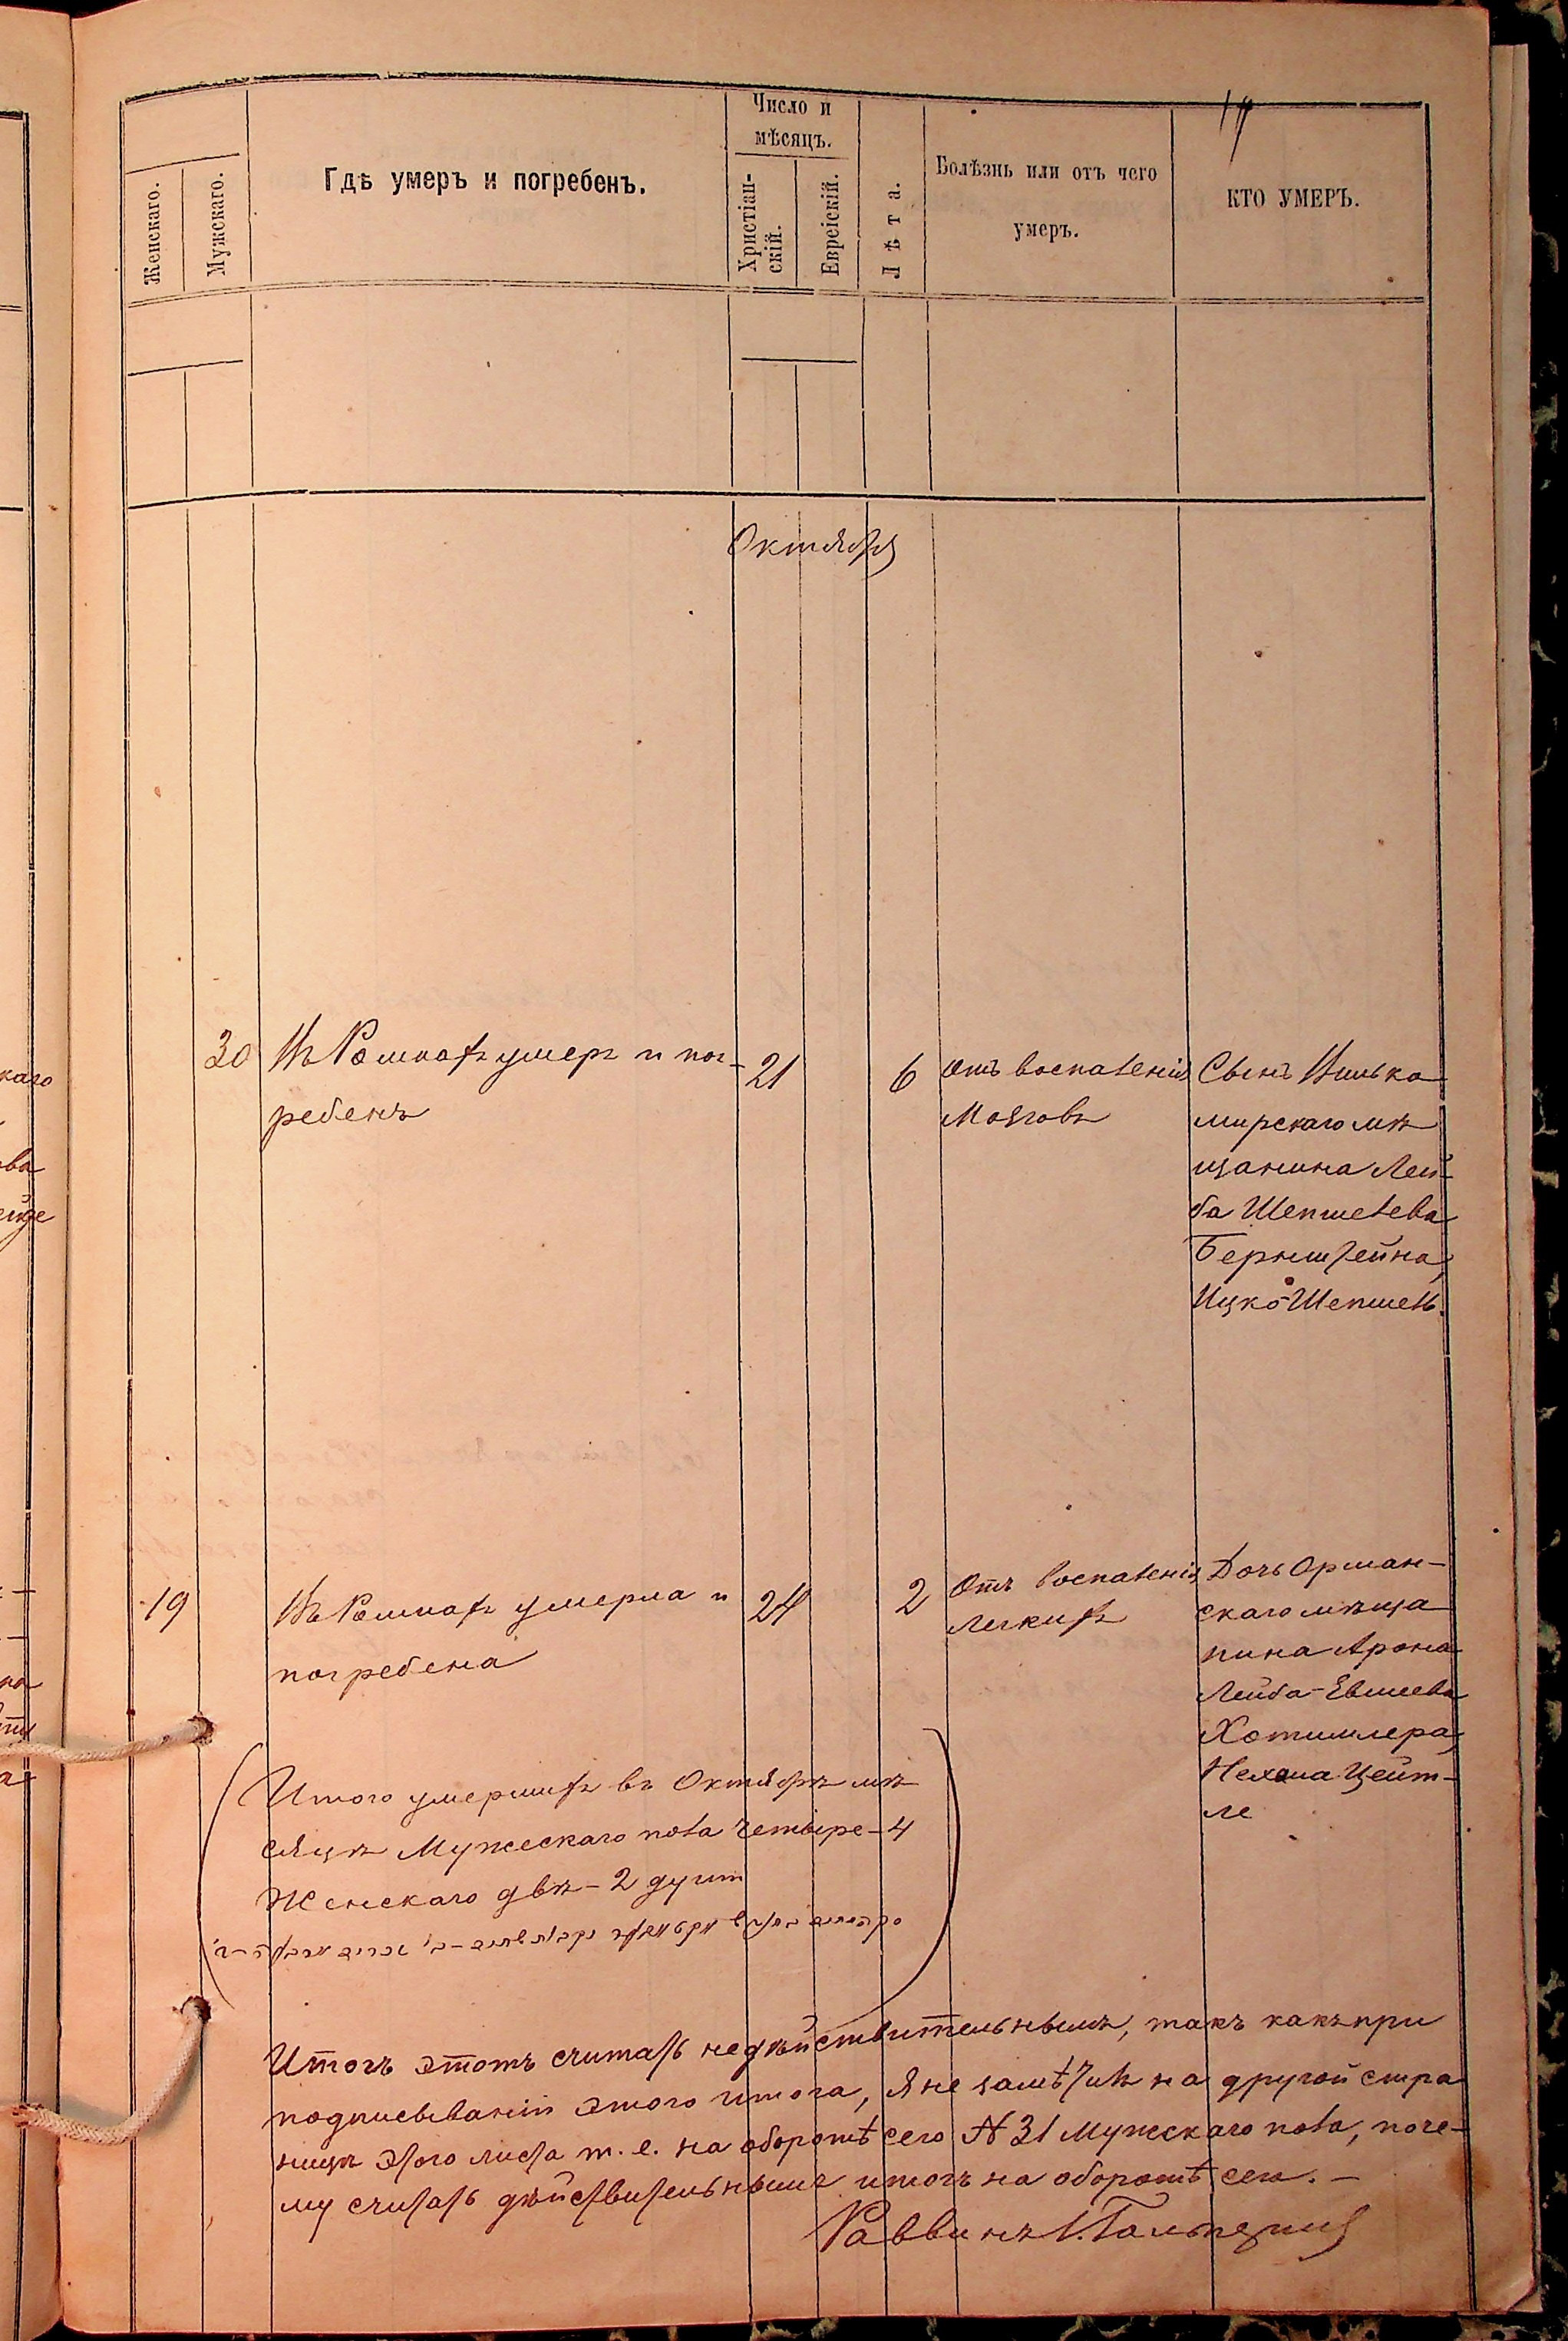 17
Женскаго.
Мужскаго.
Гдѣ умеръ и погребенъ.
Число и
мѣсяцъ.
Христіан-
скій.
Евреіскій.
Лѣта.
Болѣзнь или отъ чего
умеръ.
КТО УМЕРЪ.
Октября
30 Въ умеръ и пог-
ребенъ
21
6
отъ воспаленія
Мозговъ
Сынъ Вилько
мирскаго мѣ
щанина Лей-
ба Шепшелева
Бернштейна,
Ицко-Шепшель.
19
Въ умерла и
погребена
24
2
Отъ воспаленія
Легкихъ
Дочь Орган-
скаго мѣща
нина Арона
Лейба-Евшеева
Хотимлера
Нехама Цейт-
ле
Итого умершихъ въ Октябрѣ мѣ
сяцѣ Мужескаго пола четыре-4
Женскаго двѣ-2 душ
Итогъ этотъ считать недѣйствительнымъ, такъ какъ при
подписываніи этого итога, я не замѣтилъ на другой стра
ницѣ этого листа т. е. на оборотѣ сего N 31 Мужскаго пола, поче-
му считать дѣйствительнымъ итогъ на оборотѣ сего. -
Раввинъ
каго
ва